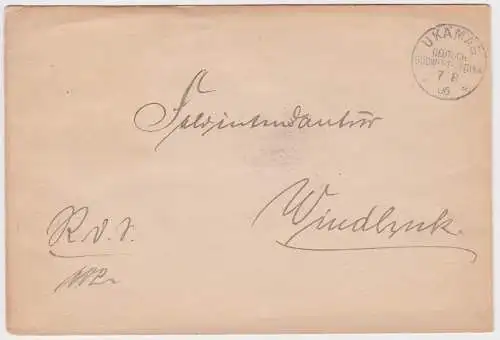 UKAMAS
DEUTSCH-
SÜDWESTAFRIKA
7 8
06
Feldintendantur
Windhuk.
R. v. r.